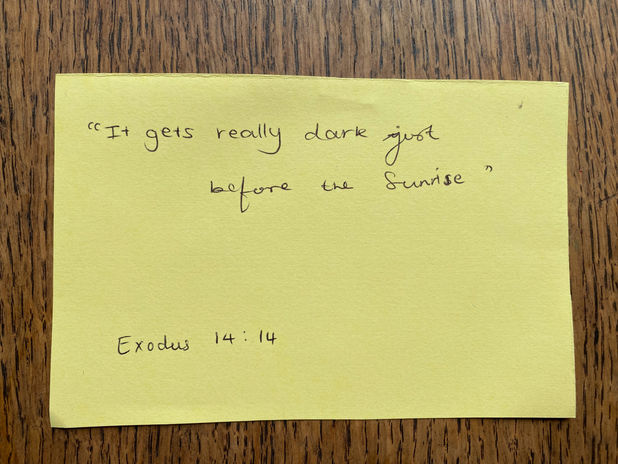 "It gets really dark just
before the Sunrise"
Exodus 14:14